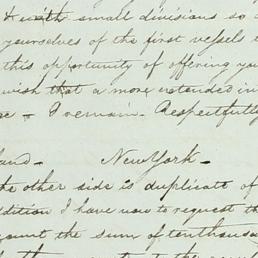 & with small divisions so
yourselves of the first vessels
this opportunity of offering you
wish that a more extended in
I remain. Respectfully
and - New York -
the other side is duplicate of
ddition I have now to request th
the sum of ten thousa